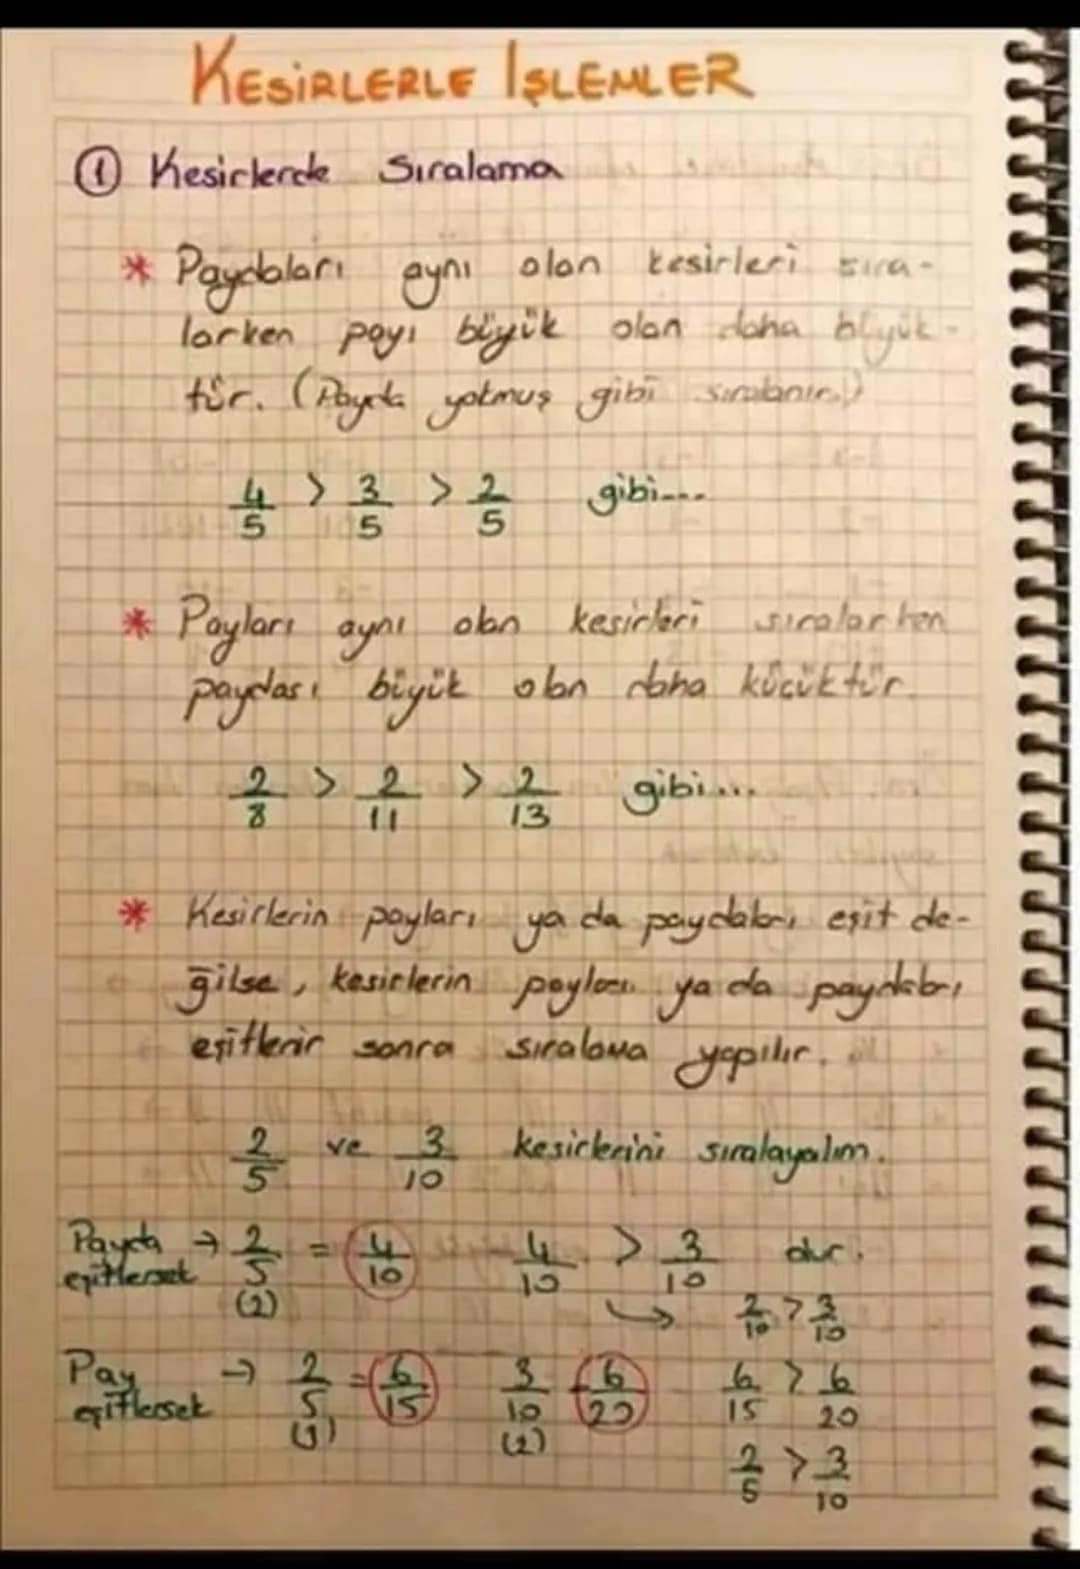 KESİRLERLE İŞLEMLER
① Kesirlerde Sıralama
* Paydaları aynı olan kesirleri sıra-
larken payı büyük olan daha büyük-
tür. (Payda yokmuş gibi sıralanır.)
4/5 > 3/5 > 2/5 gibi...
* Payları aynı olan kesirleri sıralarken
paydası büyük olan daha küçüktür.
2/8 > 2/11 > 2/13 gibi...
* Kesirlerin payları ya da paydaları eşit de-
ğilse, kesirlerin payları ya da paydaları
eşitlenir sonra sıralama yapılır.
2/5 ve 3/10 kesirlerini sıralayalım.
Payda eşitlersek → 2/5 (2) = 4/10 4/10 > 3/10 dur.
↳ 2/10 > 3/10
Pay eşitlersek → 2/5 (3) = 6/15 3/10 (2) = 6/20 6/15 > 6/20
2/5 > 3/10